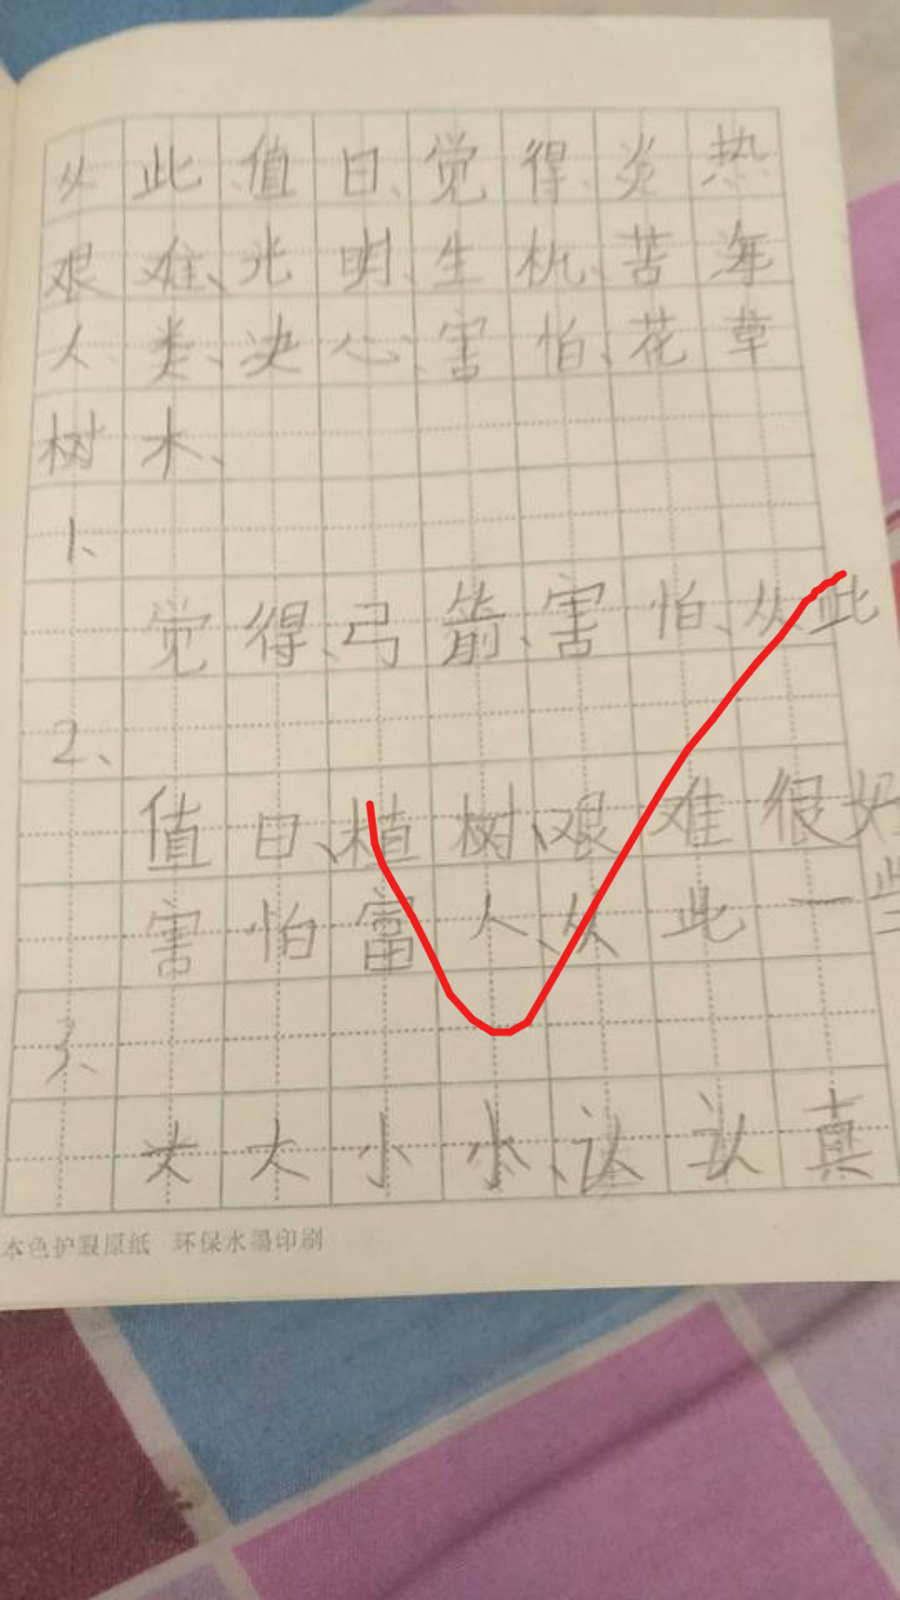 从此值日、觉得、炎热
艰难、光明、生机、苦海
人类、决心、害怕、花草
树木、
1、
觉得、弓箭、害怕、从此
2、
值日、植树、艰难很好
害怕富人、从此一些
3、
大大小小、认认真
本色护眼原纸 环保水墨印刷